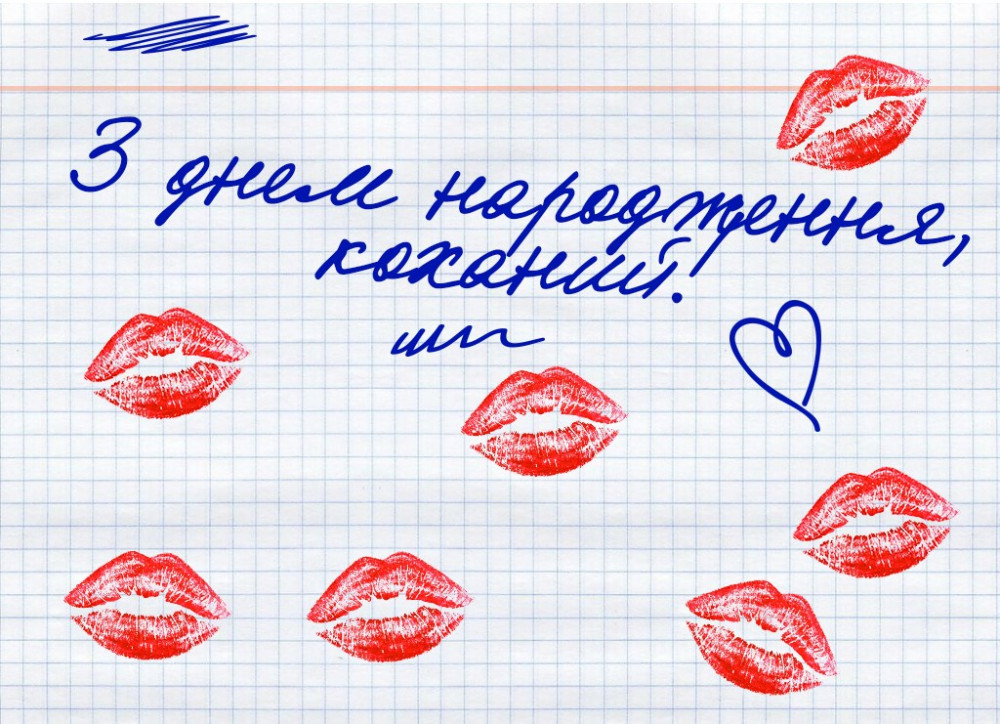 З днем народження,
коханий!